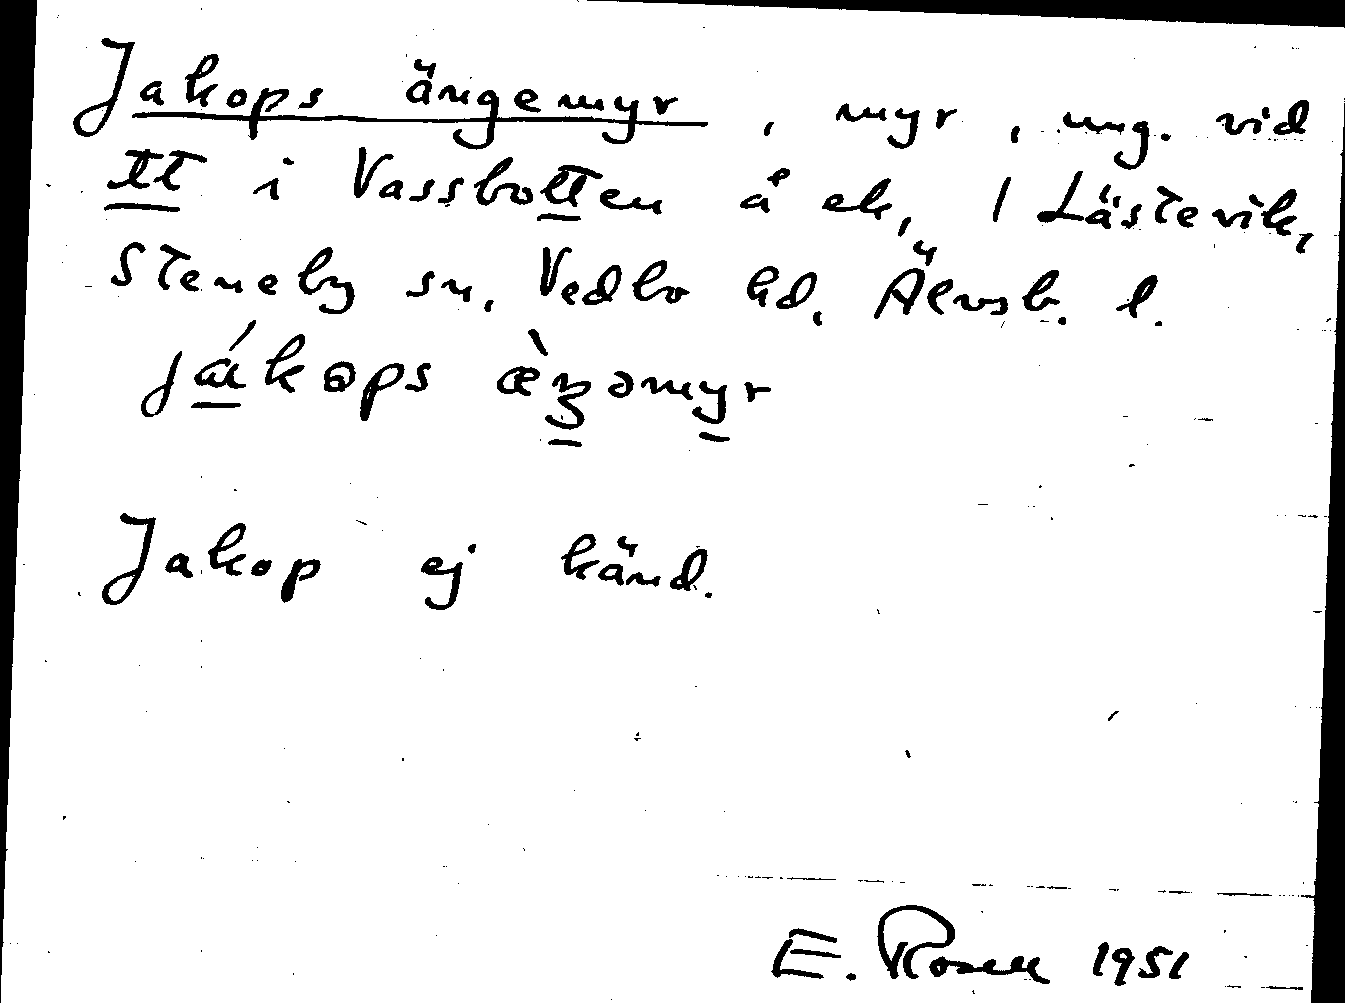 Jakops ängemyr, myr, ung. vid
tt i Vassbotten å ek, 1 Lästevik,
Steneby sn, Vedbo hd, Älvsb. l.
jákops æ̀ŋəmyr
Jakop ej känd.
E. Rosell 1951